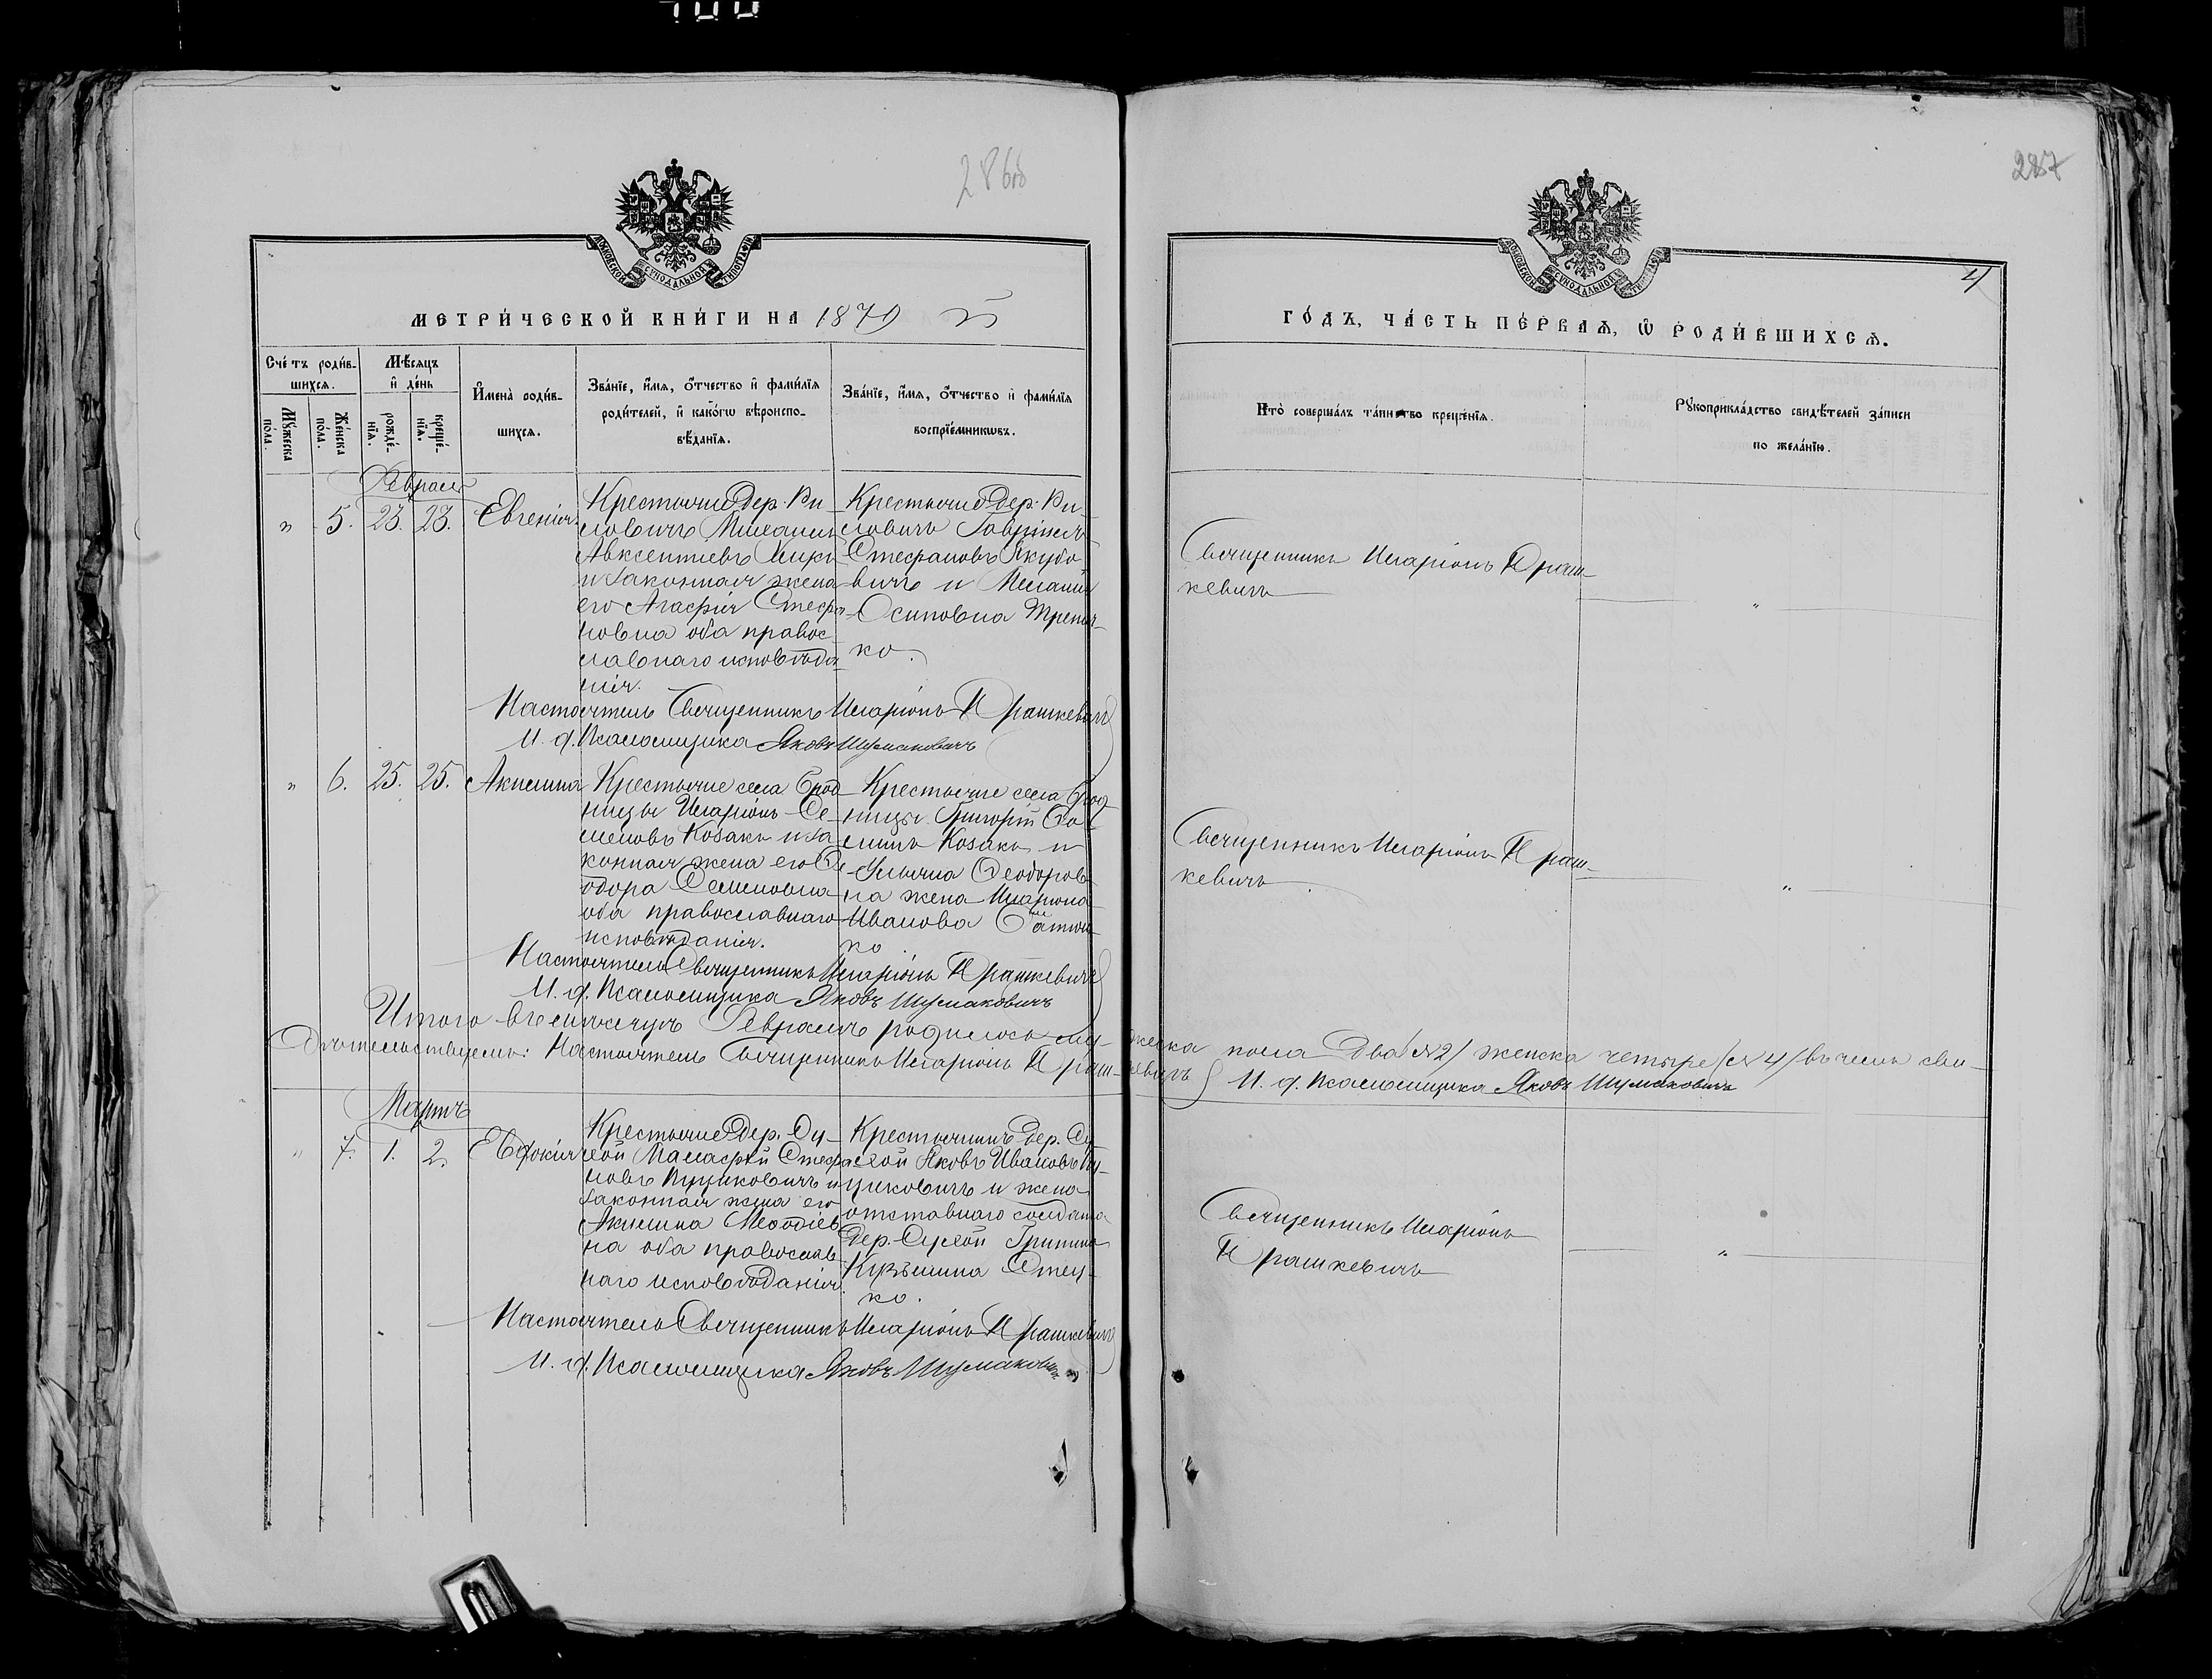 286об
287
4
МОСКОВСКОЙ СѴНОДАЛЬНОЙ ТИПОГРАФІИ
МОСКОВСКОЙ СѴНОДАЛЬНОЙ ТИПОГРАФІИ
МЕТРИ́ЧЕСКОЙ КНИ́ГИ НА 1879 й
ГО́ДЪ, ЧА́СТЬ ПЕ́РВАѦ, Ѡ҆ РОДИ́ВШИХСѦ.
Сче́тъ роди́в-
шихсѧ.
Мꙋ́жеска по́ла.
Же́нска по́ла.
Мѣ́сѧцъ
и҆ де́нь
рожде́-
нїѧ.
креще́-
нїѧ.
И҆мена̀ роди́в-
шихсѧ.
Зва́нїе, и҆́мѧ, ѻ҆́тчество и҆ фами́лїѧ
роди́телей, и҆ како́гѡ вѣроиспо-
вѣ́данїѧ.
Зва́нїе, и҆́мѧ, ѻ҆́тчество и҆ фами́лїѧ
воспрїе́мникѡвъ.
Кто̀ соверша́лъ та́инство креще́нїѧ.
Рꙋкоприкла́дство свидѣ́телей за́писи
по жела́нїю.
Февраль
„ 5. 23. 23. Евгенія
Крестьяне Дер. Ви-
ловичъ
Авксентіевъ
и законная жена
его Агафія Стефа-
новна оба правос-
лавнаго исповѣда-
нія.
Крестьяне Дер. Ви-
ловичъ Гавріилъ
Стефановъ Якубо-
вичъ и Меланія
Осиповна
ко.
Священникъ Иларіонъ Драш-
кевичъ
„
Настоятель Священникъ Иларіонъ Драшкевичъ
И. д. Псаломщика Яковъ Шумаковичъ
„ 6. 25. 25. Акилина
Крестьяне села Брод-
ницы Иларіонъ Се-
меновъ Козакъ и за-
конная жена его Ѳе-
одора Семеновна
оба православнаго
исповѣданія.
Крестьяне села Брод-
ницы Григорій Ѳо-
минъ Козакъ и
Ульяна Ѳеодоров-
на жена Иларіона
Иванова
ко.
Священникъ Иларіонъ Драш-
кевичъ
„
Настоятель Священникъ Иларіонъ Драшкевичъ
И. д. Псаломщика Яковъ Шумаковичъ
Итого въ мѣсяцѣ Февралѣ родилось му-жеска пола два /№ 2/ женска четыре /№ 4/ въ чемъ сви-
дѣтельствуемъ: Настоятель Священникъ Иларіонъ Драш-кевичъ И. д. Псаломщика Яковъ Шумаковичъ
Мартъ
„ 7. 1. 2. Евдокія
Крестьяне Дер. Су-
хой Манасфій Стефа-
новъ Куциковичъ и
законная жена его
Акилина Меѳодіев-
на оба православ-
наго исповѣданія.
Крестьянинъ Дер. Су-
хой Яковъ Ивановъ Ку-
циковичъ и жена
отставнаго солдата
Дер. Сухой
Кузьмина Стец-
ко.
Священникъ Иларіонъ
Драшкевичъ
„
Настоятель Священникъ Иларіонъ Драшкевичъ
И. д. Псаломщика Яковъ Шумаковичъ